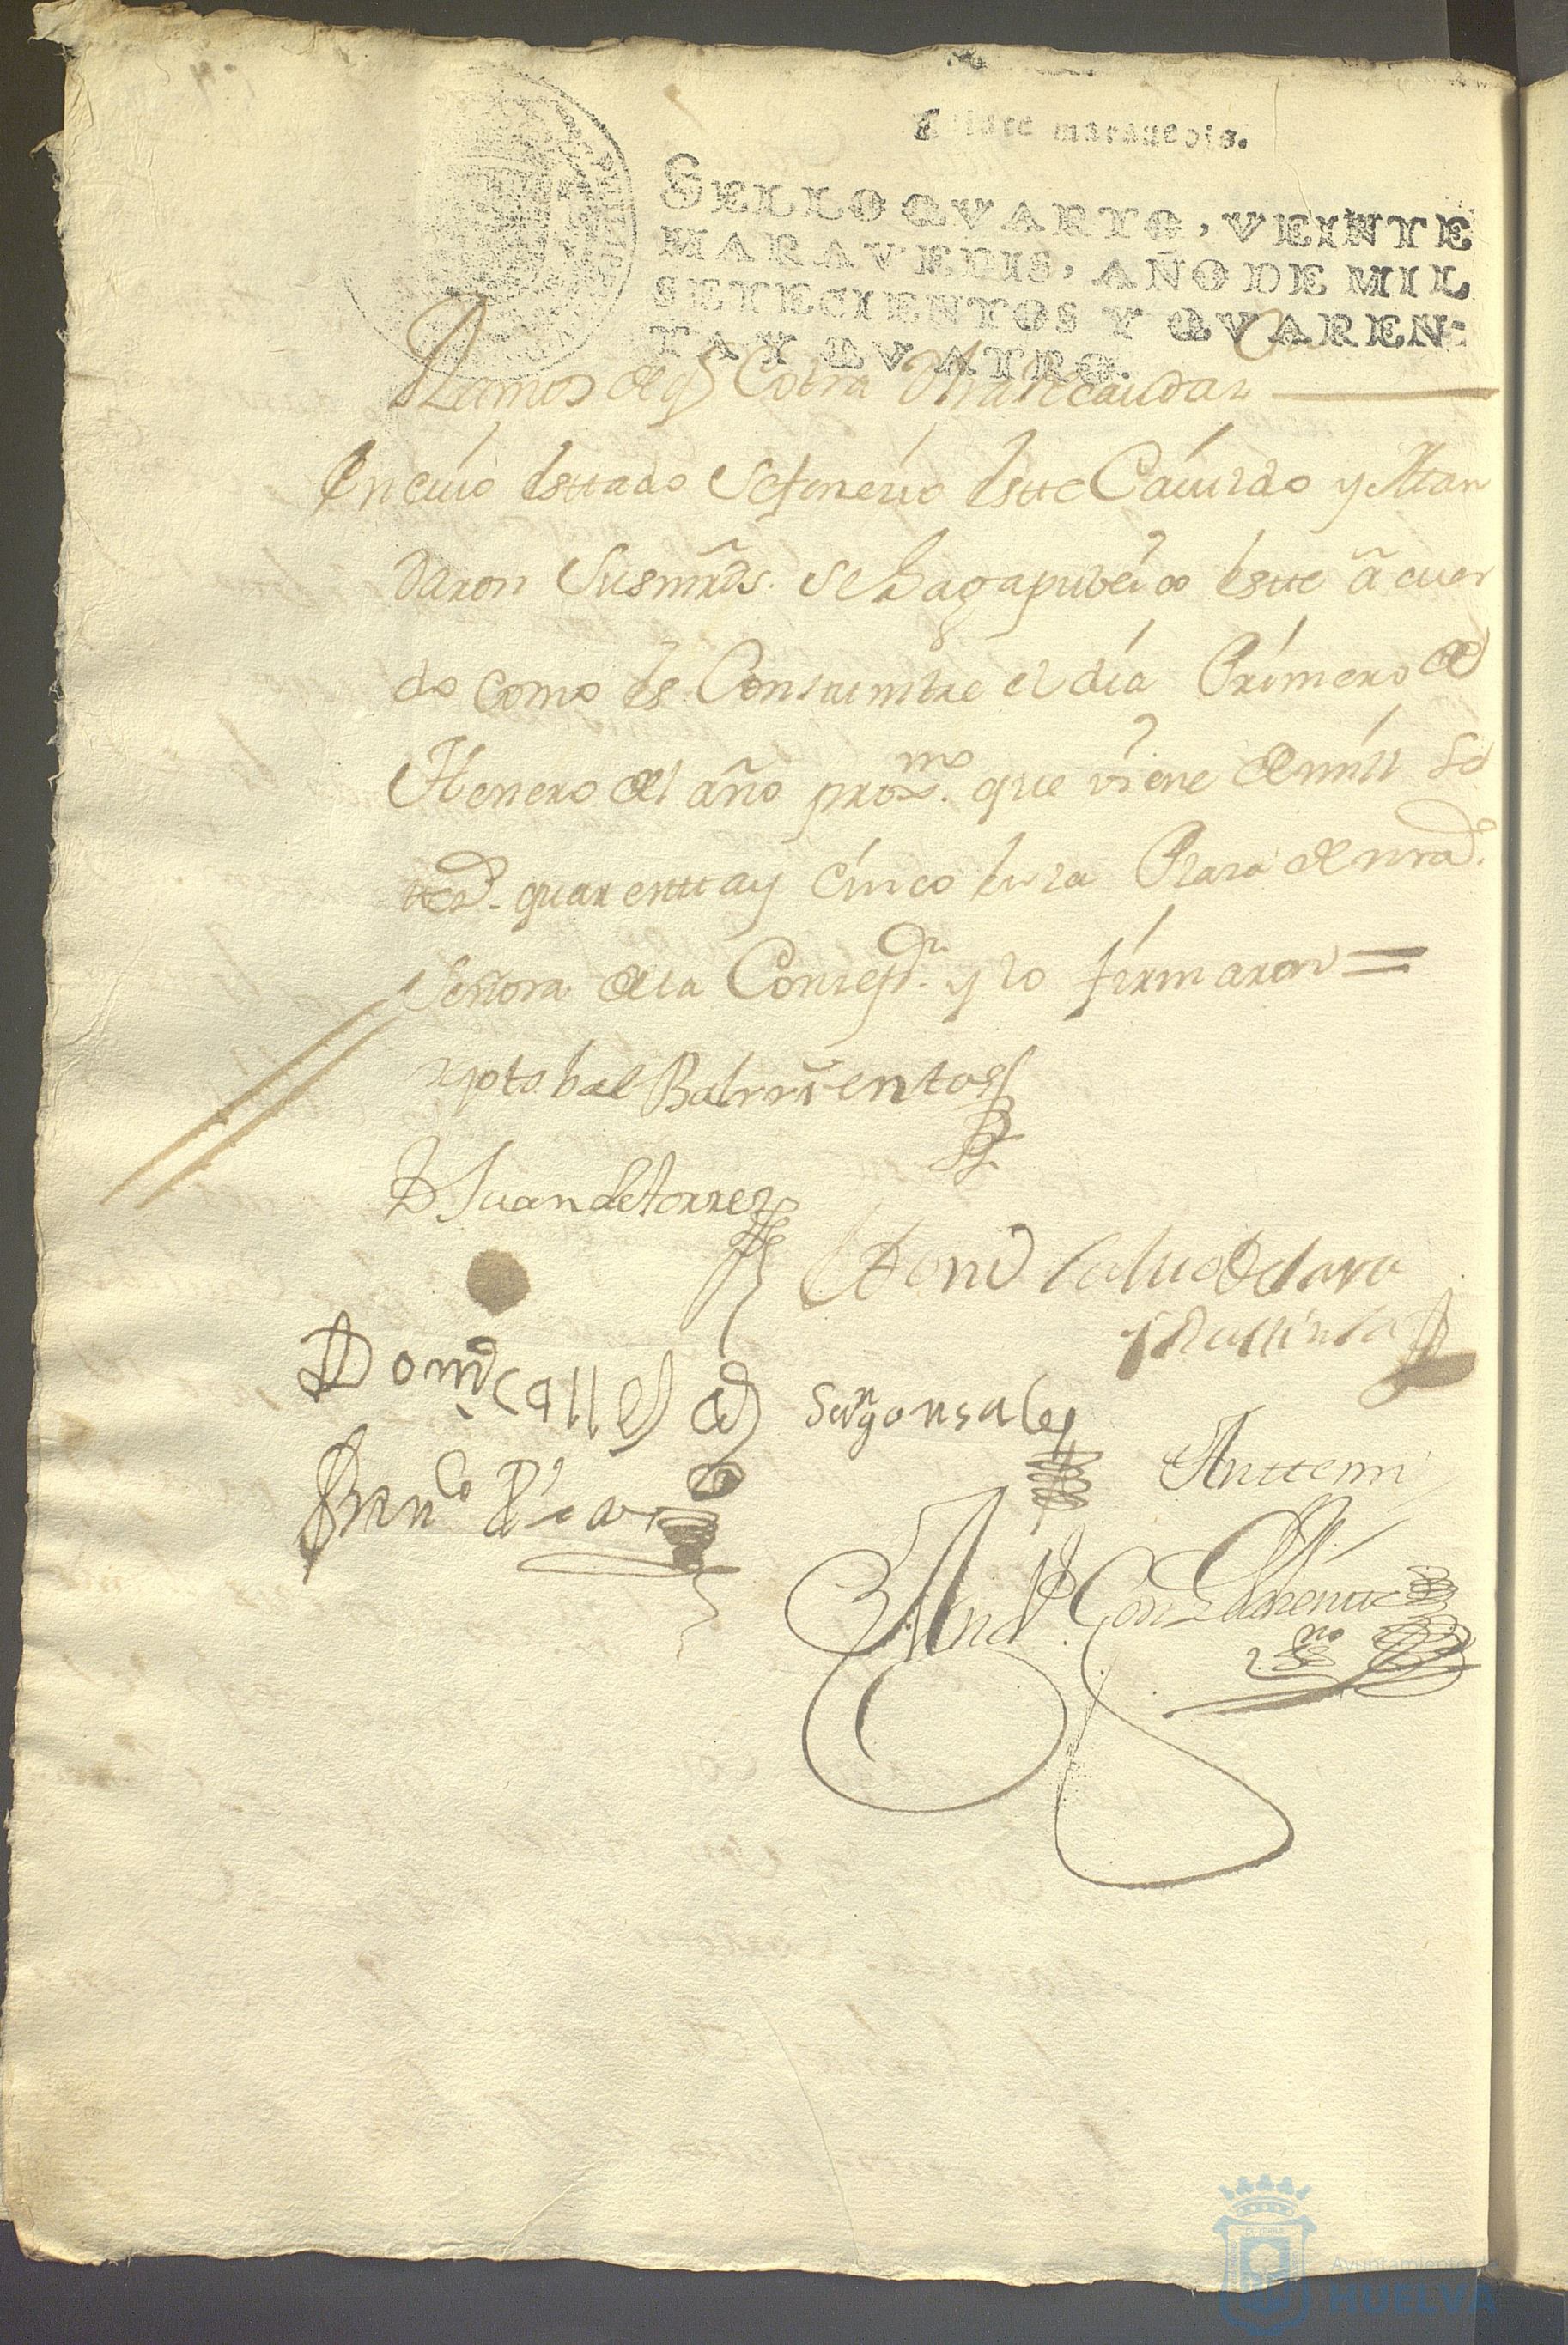 veinte maravedis.
SELLO QVARTO, VEINTE
MARAVEDIS, AÑO DE MIL
SETECIENTOS Y QVAREN-
TA Y QVATRO.
Ramos de q Cobra
En cuio esttado Sefenecio Estte Cavildo y Man
daron Susmrds. Se haga publico estte acuer
do como es Constumbre el dia Primero de
Henero del año proxmo. que viene de mill Se
ttos. quarentta y Cinco En la Plaza de nrã.
Señora de la Consepon. y lo firmaron =
xptobal Balrrientos
D Juan de torres
Dom Calbo de Lara
Domo Calle
Sevn gonsales
Franco
Anttemi
Ando. Gonz
esno
Ayuntamiento de
HUELVA